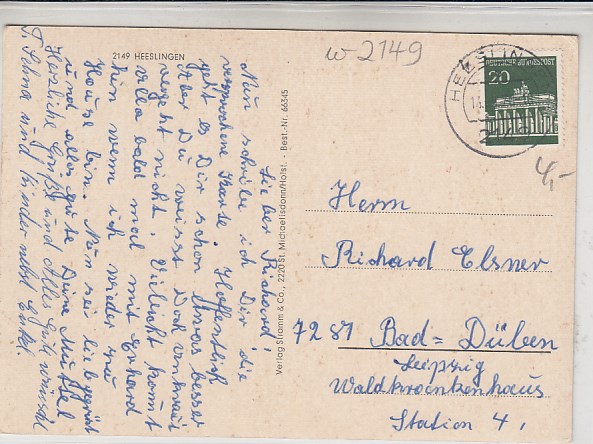 2149 HEESLINGEN
w-2149
DEUTSCHE BUNDESPOST
20
HEESLIN
4,-
Lieber Richard!
Nun schreibe ich Dir die
versprochene Karte. Hoffentlich
geht es Dir schon etwas besser
Aber Du weisst Dorle von
vergeht nicht. Vielleicht kommt
bald mal mit Erhard
hin wenn ich wieder zu
Hause bin. Nun sei lieb gegrüßt
und alles gute Deine
Herzliche Grüße und Alles Gute wünscht
T. Selma und Kinder nebst Enkel.
Verlag Stramm & Co., 2220 St. Michaelisdonn/Holst. - Best.-Nr. 66345
Herrn
Richard Elsner
7281 Bad=Düben
Leipzig
Waldkrankenhaus
Station 4,